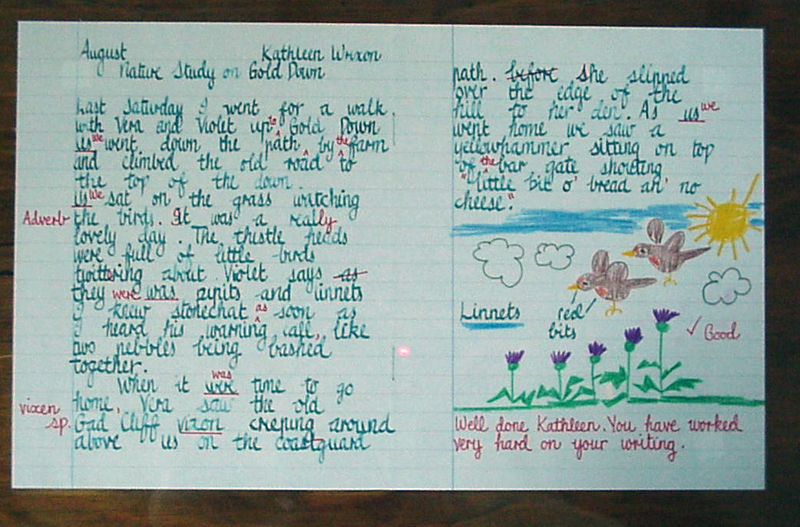 August Kathleen Wrixon
Nature Study on Gold Down
Last Saturday I went for a walk
with Vera and Violet up to Gold Down
us we went down the path by the farm
and climbed the old road to
the top of the down.
us we sat on the grass watching
Adverb the birds. It was a really
lovely day. The thistle heads
were full of little birds
twittering about Violet says as
they were was pipits and linnets
I knew stonechat as soon as
I heard his warning call, like
two pebbles being bashed
together.
was
When it were time to go
home, Vera saw the old
vixen sp. Gad Cliff vixon creeping around
above us on the coastguard
path. before she slipped
over the edge of the
hill to her den. As us we
went home we saw a
yellowhammer sitting on top
of the bar gate shouting
"little bit o' bread an' no
cheese".
Linnets
red
bits
✓ Good
Well done Kathleen. You have worked
very hard on your writing.